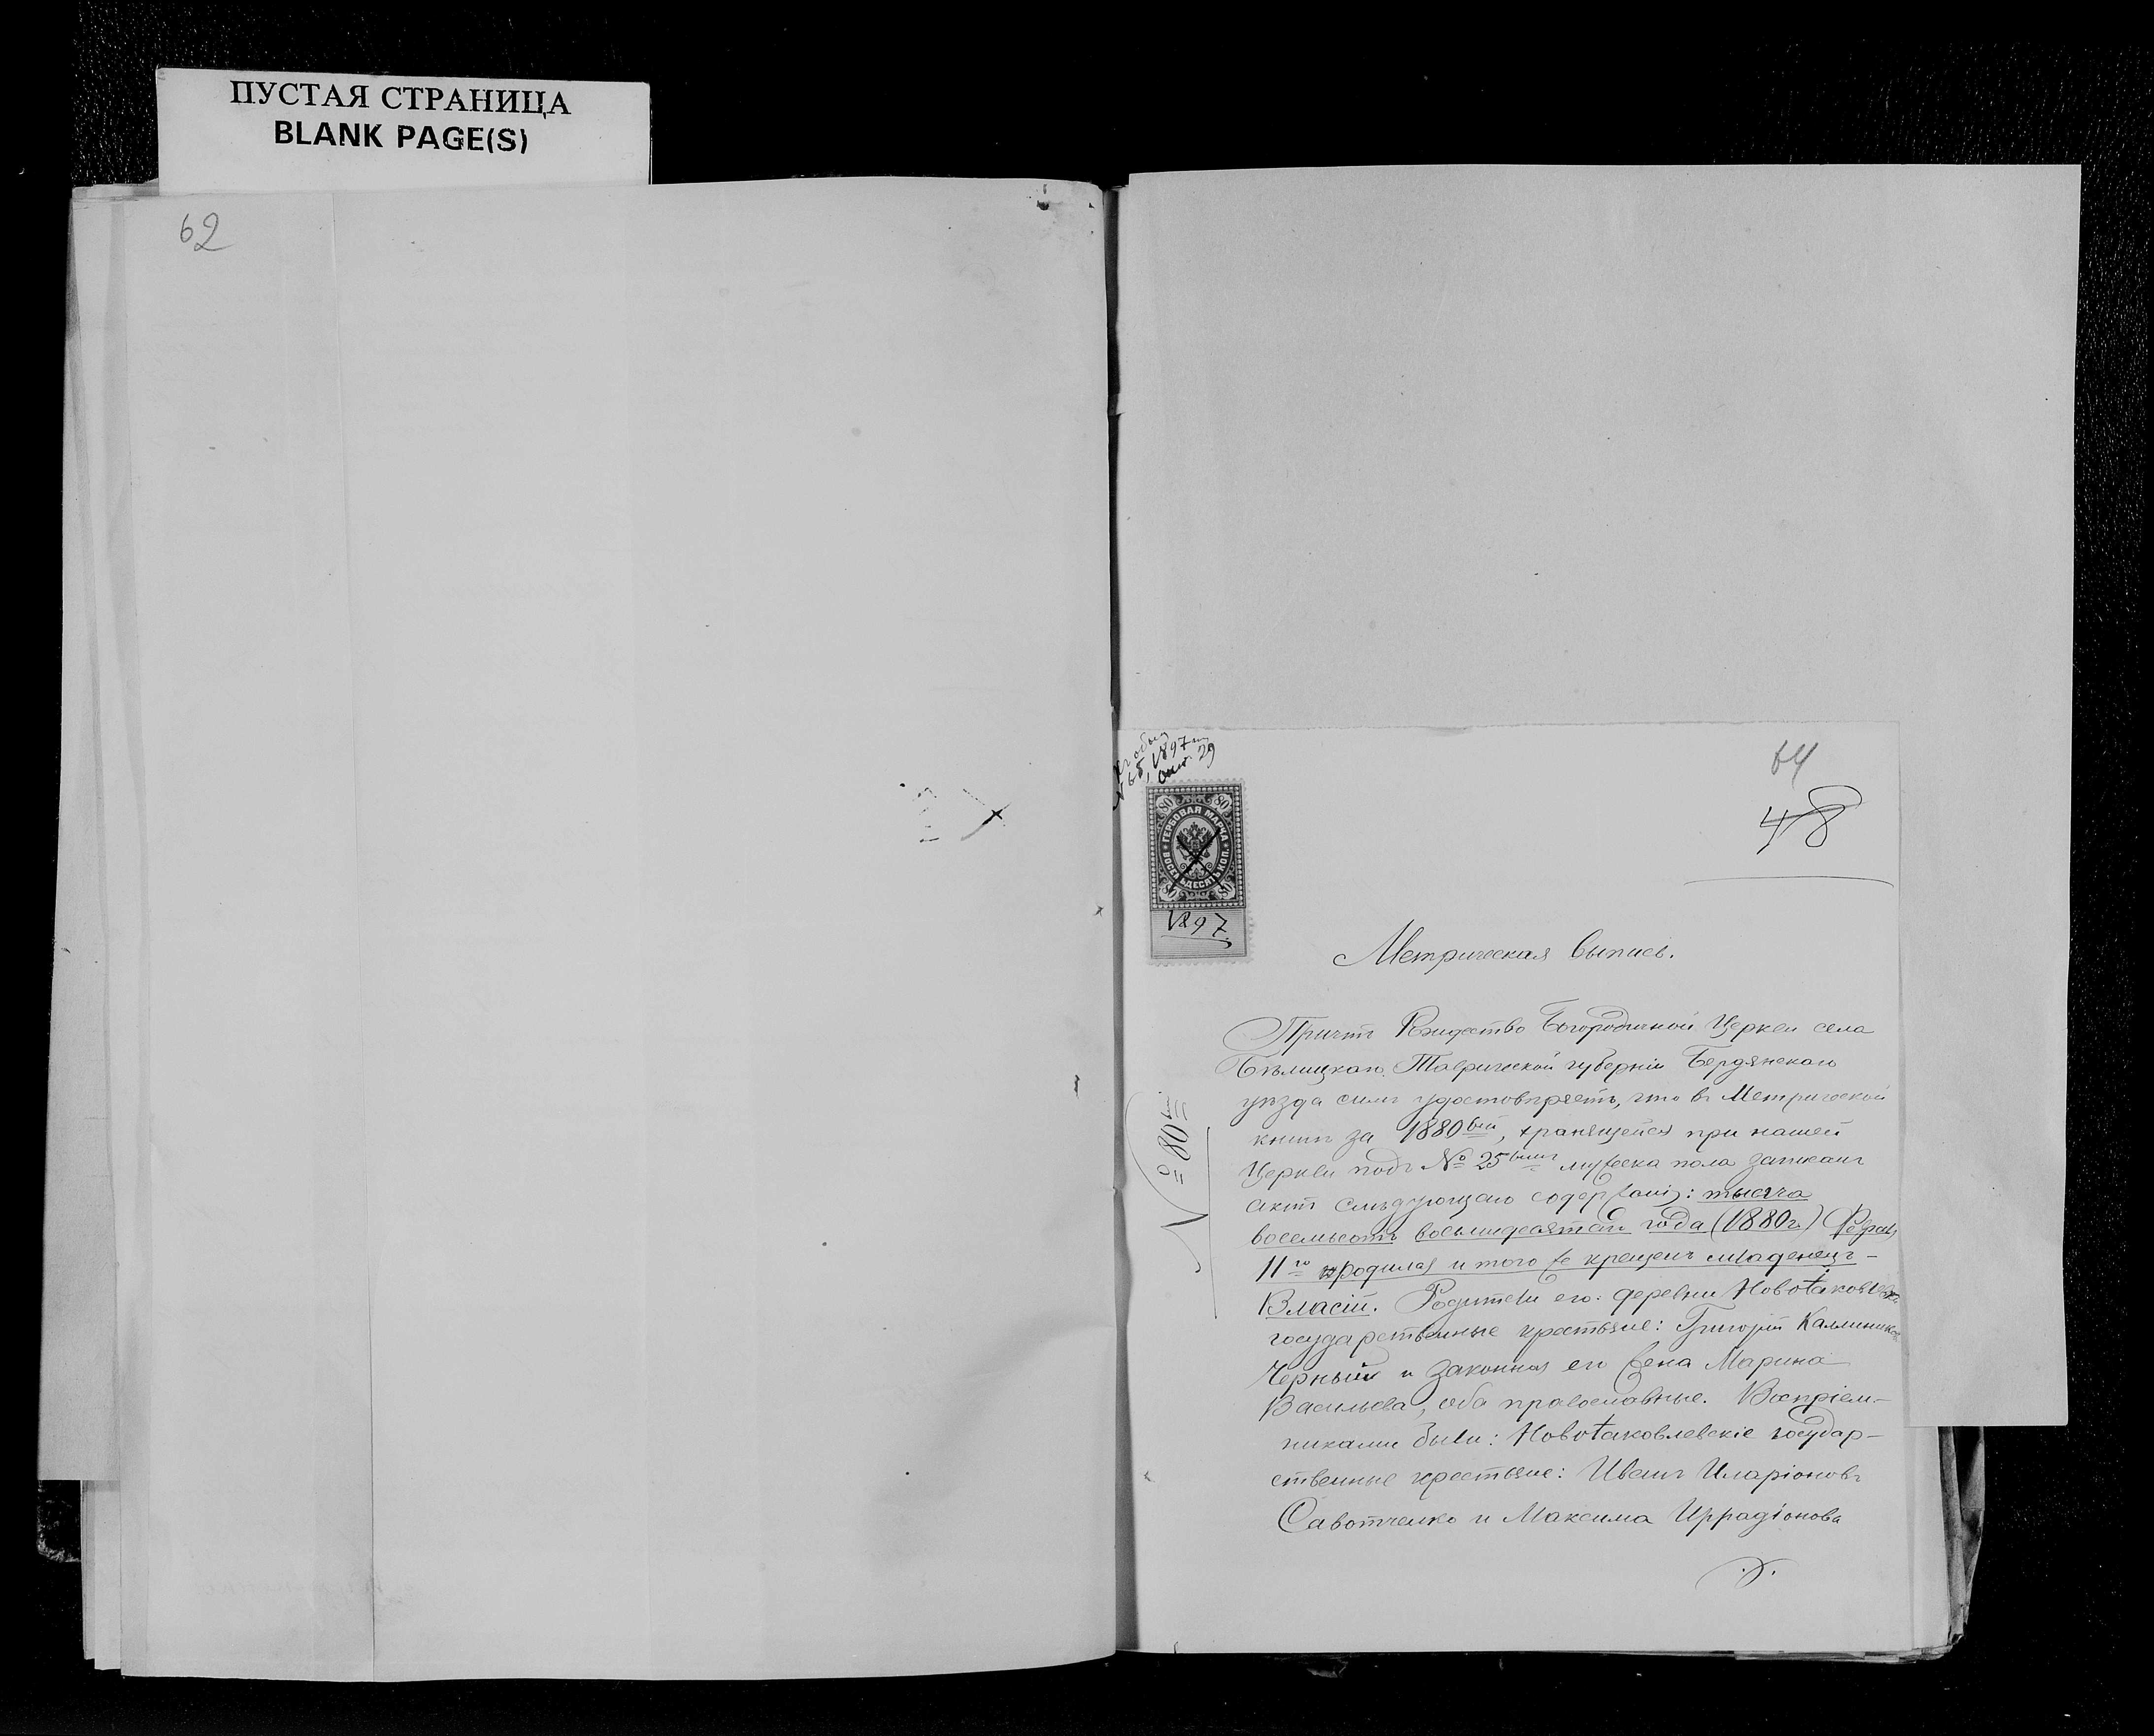 ПУСТАЯ СТРАНИЦА
BLANK PAGE(S)
62
1897
№ 65, Окт. 29
64
48
80 80
ГЕРБОВАЯ МАРКА
ВОСЕМЬДЕСЯТЪ КОП.
80 80
1897
Метрическая выпись.
№ 80
Причтъ Рождество Богородичной Церкви села
Бѣлицкаго, Таврической губерніи Бердянскаго
уѣзда симъ удостовѣряетъ, что въ Метрической
книгѣ за 1880 вый, хранящейся при нашей
Церкви подъ № 25 мужеска пола записанъ
актъ слѣдующаго содержанія: тысяча
восемьсотъ восьмидесятаго года (1880 г.)
11го родился и того же крещенъ младенецъ –
Власій. Родители его: деревни
государственные крестьяне: Григорій
Черный и законная его жена Марина
Васильева, оба православные. Воспріем-
никами были: Новоіаковлевскіе государ-
ственные крестьяне: Иванъ Иларіоновъ
Савотченко и Максима Иррадіонова